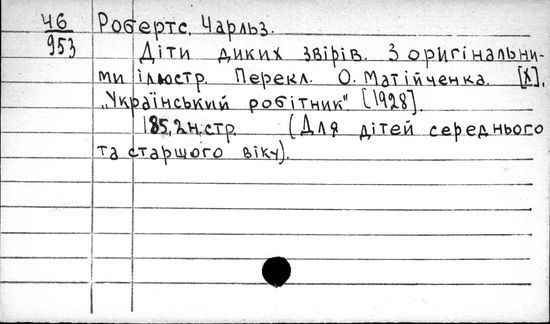 46
953
Робертс, Чарльз.
Діти диких звірів. З оригінальни-
ми ілюстр. Перекл. О. Матійченка. [Х],
„Український робітник" [1928].
185, 2 н. стр. (Для дітей середнього
та старшого віку).